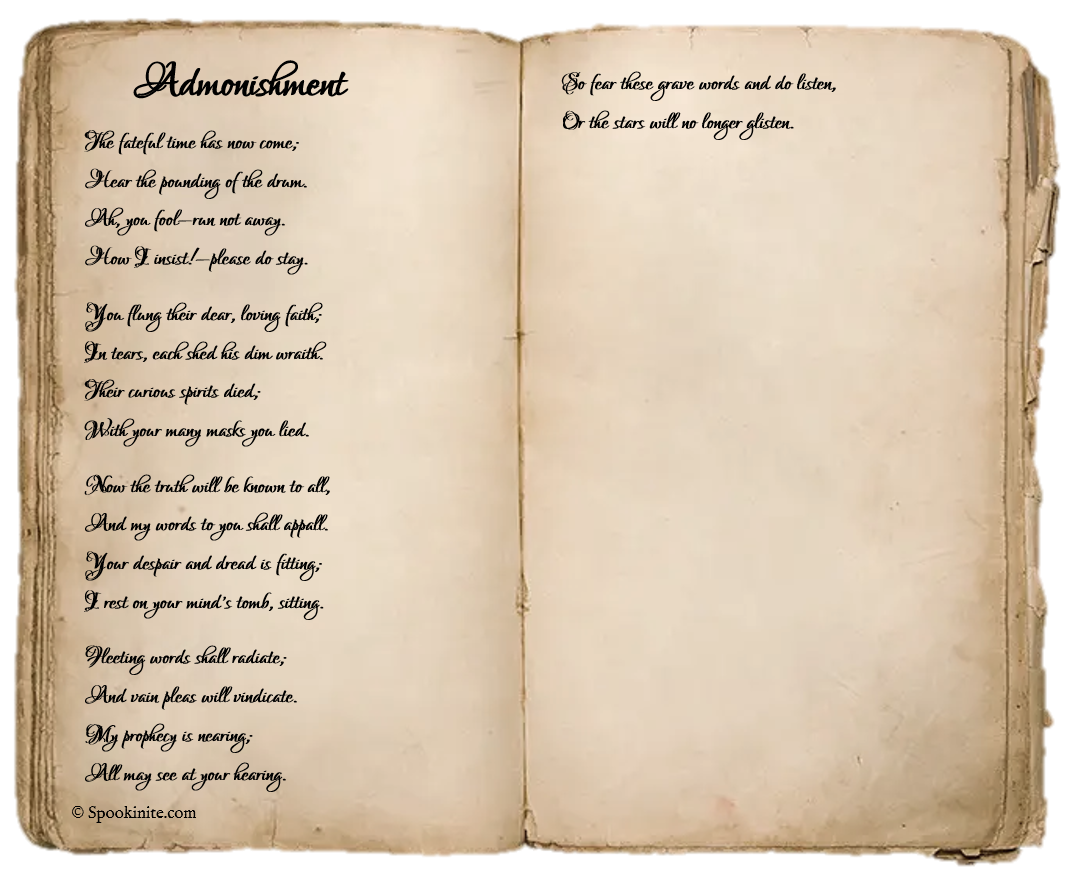 Admonishment
The fateful time has now come;
Hear the pounding of the drum.
Ah, you fool—run not away.
How I insist!—please do stay.
You flung their dear, loving faith;
In tears, each shed his dim wraith.
Their curious spirits died;
With your many masks you lied.
Now the truth will be known to all,
And my words to you shall appall.
Your despair and dread is fitting;
I rest on your mind's tomb, sitting.
Fleeting words shall radiate;
And vain pleas will vindicate.
My prophecy is nearing;
All may see at your hearing.
© Spookinite.com
So fear these grave words and do listen,
Or the stars will no longer glisten.